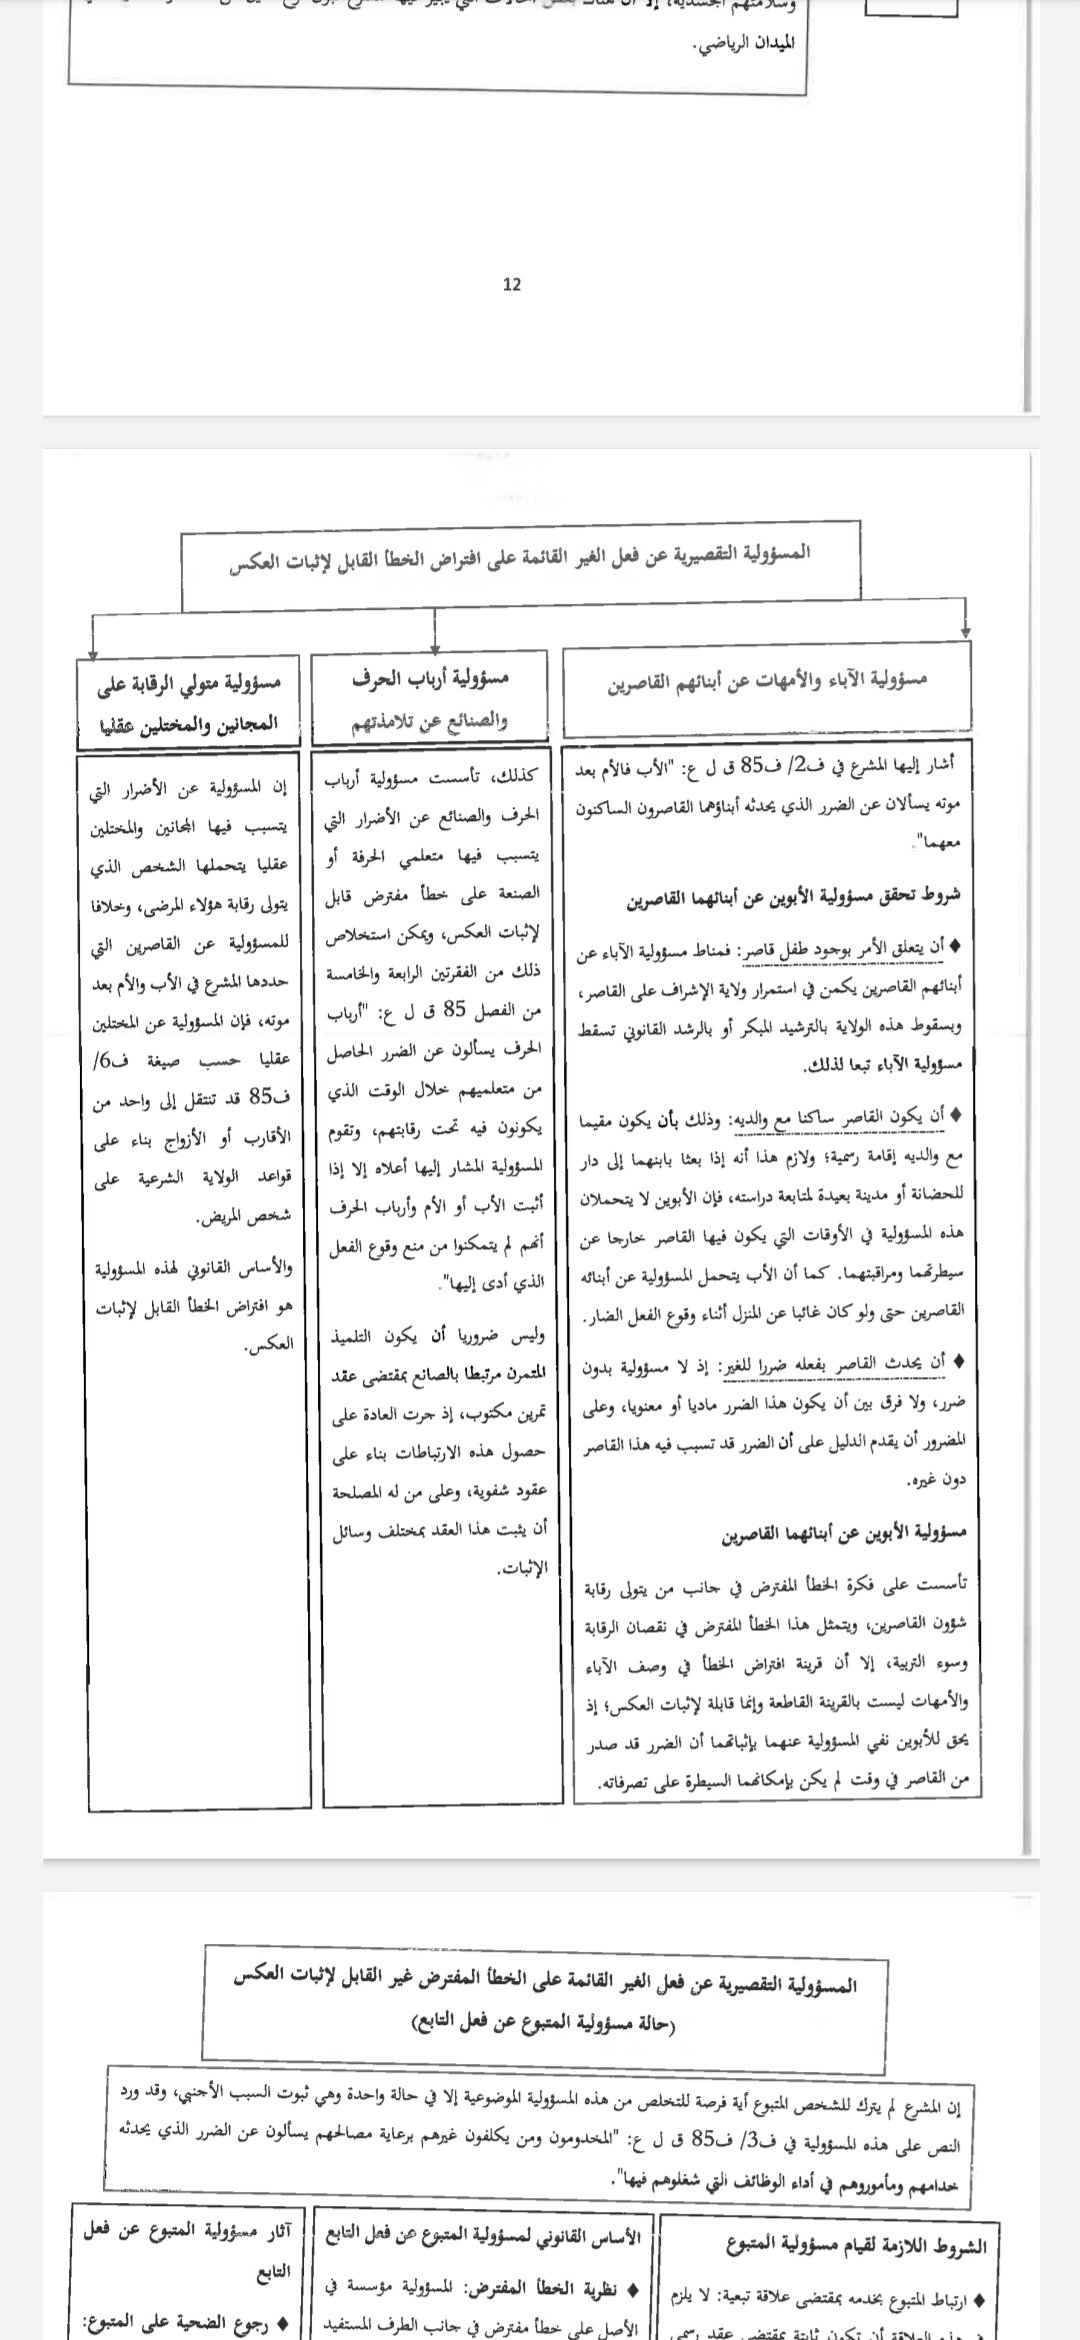 الميدان الرياضي.
12
المسؤولية التقصيرية عن فعل الغير القائمة على افتراض الخطأ القابل لإثبات العكس
مسؤولية الآباء والأمهات عن أبنائهم القاصرين
أشار إليها المشرع في ف2/ ف85 ق ل ع: "الأب فالأم بعد
موته يسألان عن الضرر الذي يحدثه أبناؤهما القاصرون الساكنون
معهما".
شروط تحقق مسؤولية الأبوين عن أبنائهما القاصرين
♦ أن يتعلق الأمر بوجود طفل قاصر: فمناط مسؤولية الآباء عن
أبنائهم القاصرين يكمن في استمرار ولاية الإشراف على القاصر،
وبسقوط هذه الولاية بالترشيد المبكر أو بالرشد القانوني تسقط
مسؤولية الآباء تبعا لذلك.
♦ أن يكون القاصر ساكنا مع والديه: وذلك بأن يكون مقيما
مع والديه إقامة رسمية؛ ولازم هذا أنه إذا بعثا بابنهما إلى دار
للحضانة أو مدينة بعيدة لمتابعة دراسته، فإن الأبوين لا يتحملان
هذه المسؤولية في الأوقات التي يكون فيها القاصر خارجا عن
سيطرتهما ومراقبتهما. كما أن الأب يتحمل المسؤولية عن أبنائه
القاصرين حتى ولو كان غائبا عن المنزل أثناء وقوع الفعل الضار.
♦ أن يحدث القاصر بفعله ضررا للغير: إذ لا مسؤولية بدون
ضرر، ولا فرق بين أن يكون هذا الضرر ماديا أو معنويا، وعلى
المضرور أن يقدم الدليل على أن الضرر قد تسبب فيه هذا القاصر
دون غيره.
مسؤولية الأبوين عن أبنائهما القاصرين
تأسست على فكرة الخطأ المفترض في جانب من يتولى رقابة
شؤون القاصرين، ويتمثل هذا الخطأ المفترض في نقصان الرقابة
وسوء التربية، إلا أن قرينة افتراض الخطأ في وصف الآباء
والأمهات ليست بالقرينة القاطعة وإنما قابلة لإثبات العكس؛ إذ
يحق للأبوين نفي المسؤولية عنهما بإثباتهما أن الضرر قد صدر
من القاصر في وقت لم يكن بإمكانهما السيطرة على تصرفاته.
مسؤولية أرباب الحرف
والصنائع عن تلامذتهم
كذلك، تأسست مسؤولية أرباب
الحرف والصنائع عن الأضرار التي
يتسبب فيها متعلمي الحرفة أو
الصنعة على خطأ مفترض قابل
لإثبات العكس، ويمكن استخلاص
ذلك من الفقرتين الرابعة والخامسة
من الفصل 85 ق ل ع: "أرباب
الحرف يسألون عن الضرر الحاصل
من متعلميهم خلال الوقت الذي
يكونون فيه تحت رقابتهم، وتقوم
المسؤولية المشار إليها أعلاه إلا إذا
أثبت الأب أو الأم وأرباب الحرف
أنهم لم يتمكنوا من منع وقوع الفعل
الذي أدى إليها".
وليس ضروريا أن يكون التلميذ
المتمرن مرتبطا بالصانع بمقتضى عقد
تمرين مكتوب، إذ جرت العادة على
حصول هذه الارتباطات بناء على
عقود شفوية، وعلى من له المصلحة
أن يثبت هذا العقد بمختلف وسائل
الإثبات.
مسؤولية متولي الرقابة على
المجانين والمختلين عقليا
إن المسؤولية عن الأضرار التي
يتسبب فيها المجانين والمختلين
عقليا يتحملها الشخص الذي
يتولى رقابة هؤلاء المرضى، وخلافا
للمسؤولية عن القاصرين التي
حددها المشرع في الأب والأم بعد
موته، فإن المسؤولية عن المختلين
عقليا حسب صيغة ف6/
ف85 قد تنتقل إلى واحد من
الأقارب أو الأزواج بناء على
قواعد الولاية الشرعية على
شخص المريض.
والأساس القانوني لهذه المسؤولية
هو افتراض الخطأ القابل لإثبات
العكس.
المسؤولية التقصيرية عن فعل الغير القائمة على الخطأ المفترض غير القابل لإثبات العكس
(حالة مسؤولية المتبوع عن فعل التابع)
إن المشرع لم يترك للشخص المتبوع أية فرصة للتخلص من هذه المسؤولية الموضوعية إلا في حالة واحدة وهي ثبوت السبب الأجنبي، وقد ورد
النص على هذه المسؤولية في ف3/ ف85 ق ل ع: "المخدومون ومن يكلفون غيرهم برعاية مصالحهم يسألون عن الضرر الذي يحدثه
خدامهم ومأموروهم في أداء الوظائف التي شغلوهم فيها".
الشروط اللازمة لقيام مسؤولية المتبوع
♦ ارتباط المتبوع بخدمه بمقتضى علاقة تبعية: لا يلزم
الأساس القانوني لمسؤولية المتبوع عن فعل التابع
♦ نظرية الخطأ المفترض: المسؤولية مؤسسة في
الأصل على خطأ مفترض في جانب الطرف المستفيد
آثار مسؤولية المتبوع عن فعل
التابع
♦ رجوع الضحية على المتبوع: